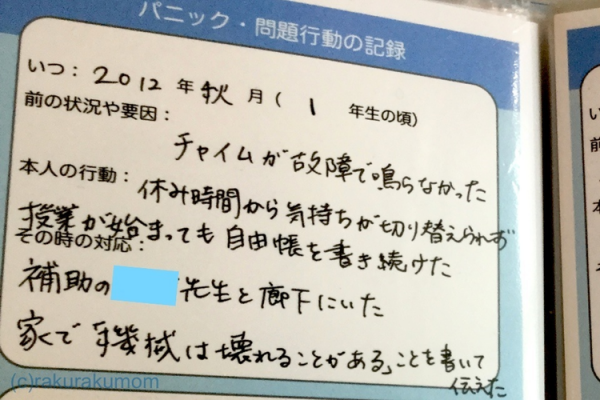 パニック・問題行動の記録
いつ：2012年 秋 月（ 1 年生の頃）
前の状況や要因：
チャイムが故障で鳴らなかった
本人の行動：
休み時間から気持ちが切り替えられず
授業が始まっても自由帳を書き続けた
その時の対応：
補助の 先生と廊下にいた
家で「機械は壊れることがある」ことを書いて
伝えた
(c)rakurakumom